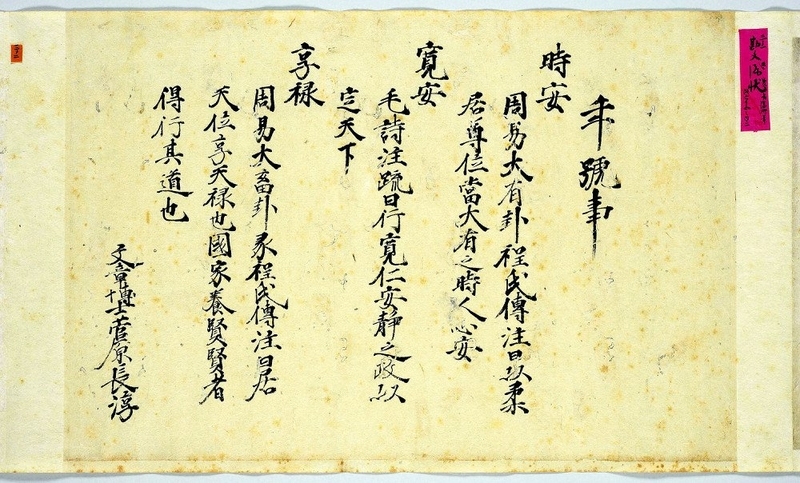 年號事
時安
周易大有卦程氏傳注曰以柔
居尊位當大有之時人心安
寛安
毛詩注疏曰行寛仁安靜之政以
定天下
享禄
周易大畜卦彖程氏傳注曰居
天位享天禄也國家養賢賢者
得行其道也
文章博士菅原長淳